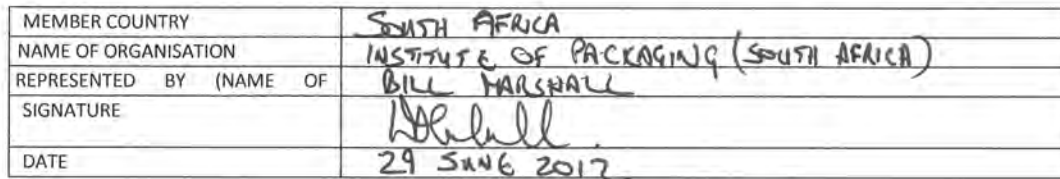 MEMBER COUNTRY SOUTH AFRICA
NAME OF ORGANISATION INSTITUTE OF PACKAGING (SOUTH AFRICA)
REPRESENTED BY (NAME OF BILL MARSHALL
SIGNATURE
DATE 29 JUNE 2017